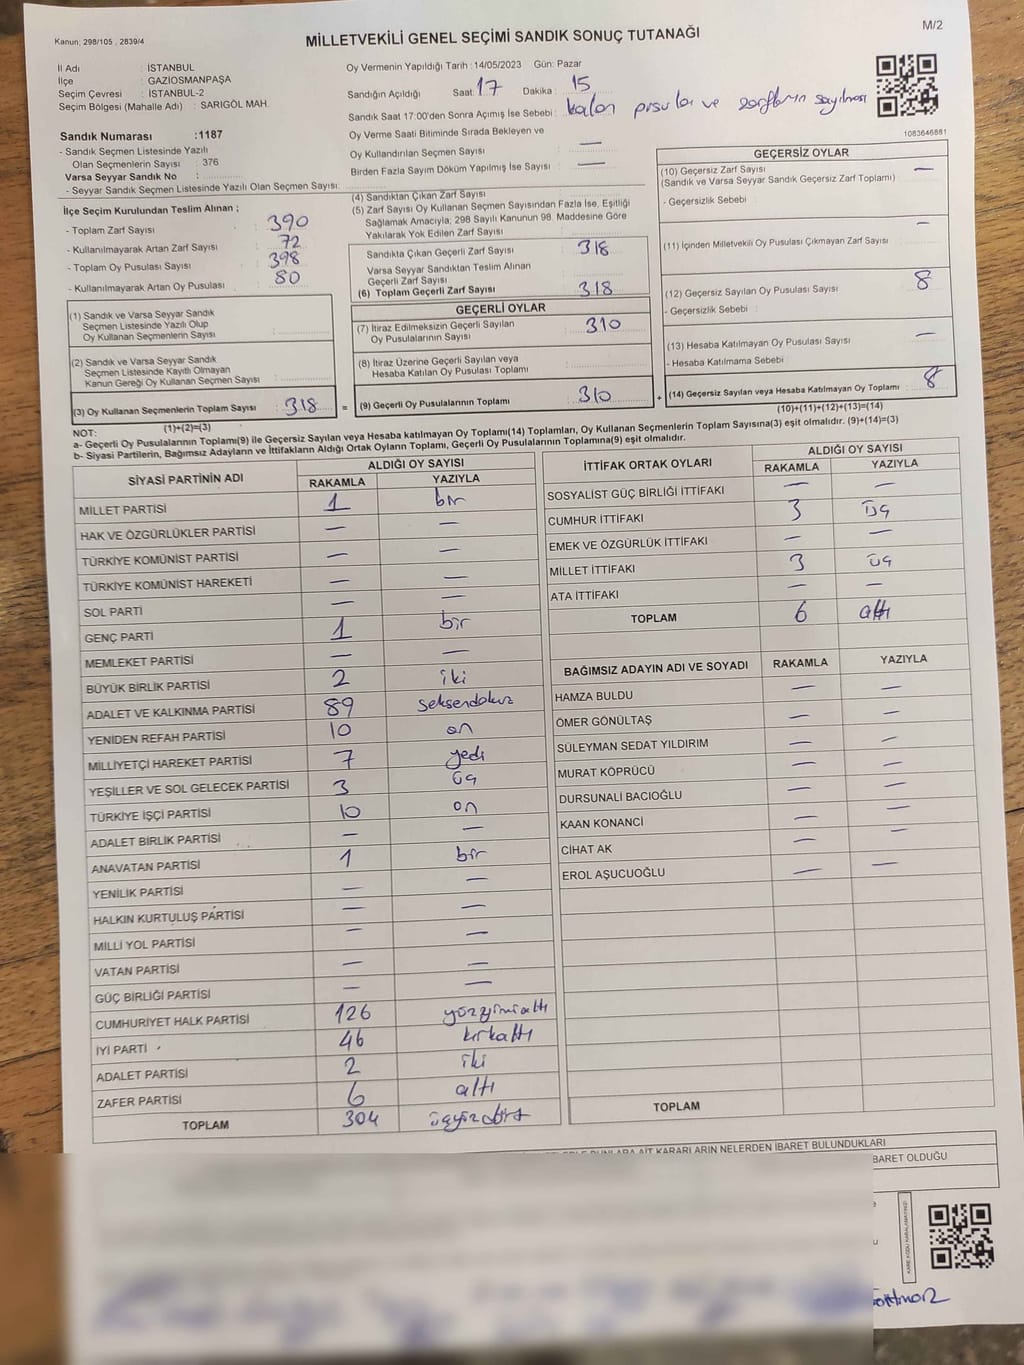 Kanun; 298/105 , 2839/4
MİLLETVEKİLİ GENEL SEÇİMİ SANDIK SONUÇ TUTANAĞI
M/2
İl Adı : İSTANBUL
İlçe : GAZİOSMANPAŞA
Seçim Çevresi : İSTANBUL-2
Seçim Bölgesi (Mahalle Adı) : SARIGÖL MAH.
Sandık Numarası :1187
- Sandık Seçmen Listesinde Yazılı
Olan Seçmenlerin Sayısı : 376
Varsa Seyyar Sandık No :
- Seyyar Sandık Seçmen Listesinde Yazılı Olan Seçmen Sayısı:
Oy Vermenin Yapıldığı Tarih :14/05/2023 Gün: Pazar
Sandığın Açıldığı Saat: 17 Dakika : 15
Sandık Saat 17:00'den Sonra Açımış İse Sebebi : kalan pusula ve zarfların sayılması
Oy Verme Saati Bitiminde Sırada Bekleyen ve
Oy Kullandırılan Seçmen Sayısı : —
Birden Fazla Sayım Döküm Yapılmış İse Sayısı : —
1083646881
İlçe Seçim Kurulundan Teslim Alınan ;
- Toplam Zarf Sayısı : 390
- Kullanılmayarak Artan Zarf Sayısı : 72
- Toplam Oy Pusulası Sayısı : 398
- Kullanılmayarak Artan Oy Pusulası : 80
(1) Sandık ve Varsa Seyyar Sandık
Seçmen Listesinde Yazılı Olup
Oy Kullanan Seçmenlerin Sayısı :
(2) Sandık ve Varsa Seyyar Sandık
Seçmen Listesinde Kayıtlı Olmayan
Kanun Gereği Oy Kullanan Seçmen Sayısı :
(3) Oy Kullanan Seçmenlerin Toplam Sayısı : 318 =
(1)+(2)=(3)
(4) Sandıktan Çıkan Zarf Sayısı :
(5) Zarf Sayısı Oy Kullanan Seçmen Sayısından Fazla İse, Eşitliği
Sağlamak Amacıyla; 298 Sayılı Kanunun 98. Maddesine Göre
Yakılarak Yok Edilen Zarf Sayısı :
Sandıkta Çıkan Geçerli Zarf Sayısı : 318
Varsa Seyyar Sandıktan Teslim Alınan
Geçerli Zarf Sayısı :
(6) Toplam Geçerli Zarf Sayısı : 318
GEÇERLİ OYLAR
(7) İtiraz Edilmeksizin Geçerli Sayılan
Oy Pusulalarının Sayısı : 310
(8) İtiraz Üzerine Geçerli Sayılan veya
Hesaba Katılan Oy Pusulası Toplamı :
(9) Geçerli Oy Pusulalarının Toplamı : 310 +
GEÇERSİZ OYLAR
(10) Geçersiz Zarf Sayısı : —
(Sandık ve Varsa Seyyar Sandık Geçersiz Zarf Toplamı)
- Geçersizlik Sebebi :
(11) İçinden Milletvekili Oy Pusulası Çıkmayan Zarf Sayısı : —
(12) Geçersiz Sayılan Oy Pusulası Sayısı : 8
- Geçersizlik Sebebi :
(13) Hesaba Katılmayan Oy Pusulası Sayısı : —
- Hesaba Katılmama Sebebi :
(14) Geçersiz Sayılan veya Hesaba Katılmayan Oy Toplamı : 8
(10)+(11)+(12)+(13)=(14)
NOT:
a- Geçerli Oy Pusulalarının Toplamı(9) ile Geçersiz Sayılan veya Hesaba katılmayan Oy Toplamı(14) Toplamları, Oy Kullanan Seçmenlerin Toplam Sayısına(3) eşit olmalıdır. (9)+(14)=(3)
b- Siyasi Partilerin, Bağımsız Adayların ve İttifakların Aldığı Ortak Oyların Toplamı, Geçerli Oy Pusulalarının Toplamına(9) eşit olmalıdır.
SİYASİ PARTİNİN ADI ALDIĞI OY SAYISI
RAKAMLA YAZIYLA
MİLLET PARTİSİ 1 bir
HAK VE ÖZGÜRLÜKLER PARTİSİ — —
TÜRKİYE KOMÜNİST PARTİSİ — —
TÜRKİYE KOMÜNİST HAREKETİ — —
SOL PARTİ — —
GENÇ PARTİ 1 bir
MEMLEKET PARTİSİ — —
BÜYÜK BİRLİK PARTİSİ 2 iki
ADALET VE KALKINMA PARTİSİ 89 seksendokuz
YENİDEN REFAH PARTİSİ 10 on
MİLLİYETÇİ HAREKET PARTİSİ 7 yedi
YEŞİLLER VE SOL GELECEK PARTİSİ 3 üç
TÜRKİYE İŞÇİ PARTİSİ 10 on
ADALET BİRLİK PARTİSİ — —
ANAVATAN PARTİSİ 1 bir
YENİLİK PARTİSİ — —
HALKIN KURTULUŞ PARTİSİ — —
MİLLİ YOL PARTİSİ — —
VATAN PARTİSİ — —
GÜÇ BİRLİĞİ PARTİSİ — —
CUMHURİYET HALK PARTİSİ 126 yüzyirmialtı
İYİ PARTİ 46 kırkaltı
ADALET PARTİSİ 2 iki
ZAFER PARTİSİ 6 altı
TOPLAM 304 üçyüzdört
İTTİFAK ORTAK OYLARI ALDIĞI OY SAYISI
RAKAMLA YAZIYLA
SOSYALİST GÜÇ BİRLİĞİ İTTİFAKI — —
CUMHUR İTTİFAKI 3 üç
EMEK VE ÖZGÜRLÜK İTTİFAKI — —
MİLLET İTTİFAKI 3 üç
ATA İTTİFAKI — —
TOPLAM 6 altı
BAĞIMSIZ ADAYIN ADI VE SOYADI RAKAMLA YAZIYLA
HAMZA BULDU — —
ÖMER GÖNÜLTAŞ — —
SÜLEYMAN SEDAT YILDIRIM — —
MURAT KÖPRÜCÜ — —
DURSUNALİ BACIOĞLU — —
KAAN KONANCİ — —
CİHAT AK — —
EROL AŞUCUOĞLU — —
TOPLAM
KARARLARIN NELERDEN İBARET BULUNDUKLARI
BARET OLDUĞU